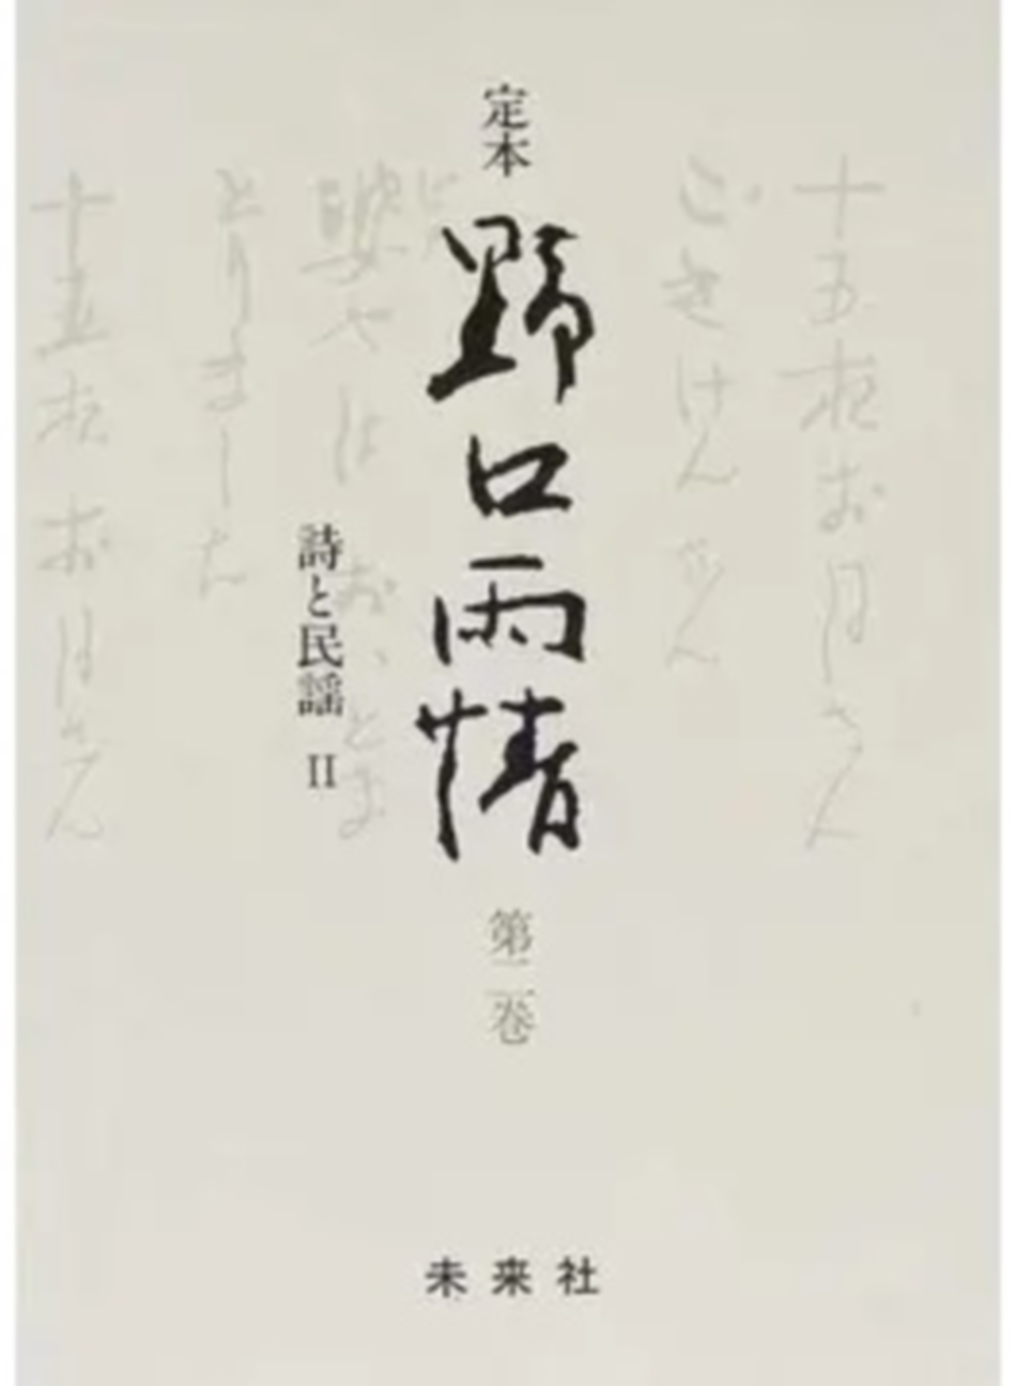 定本
野口雨情
第二巻
詩と民謡 II
十五夜お月さん
ごきげんさん
婆やは おいとま
とりました
十五夜お月さん
未来社